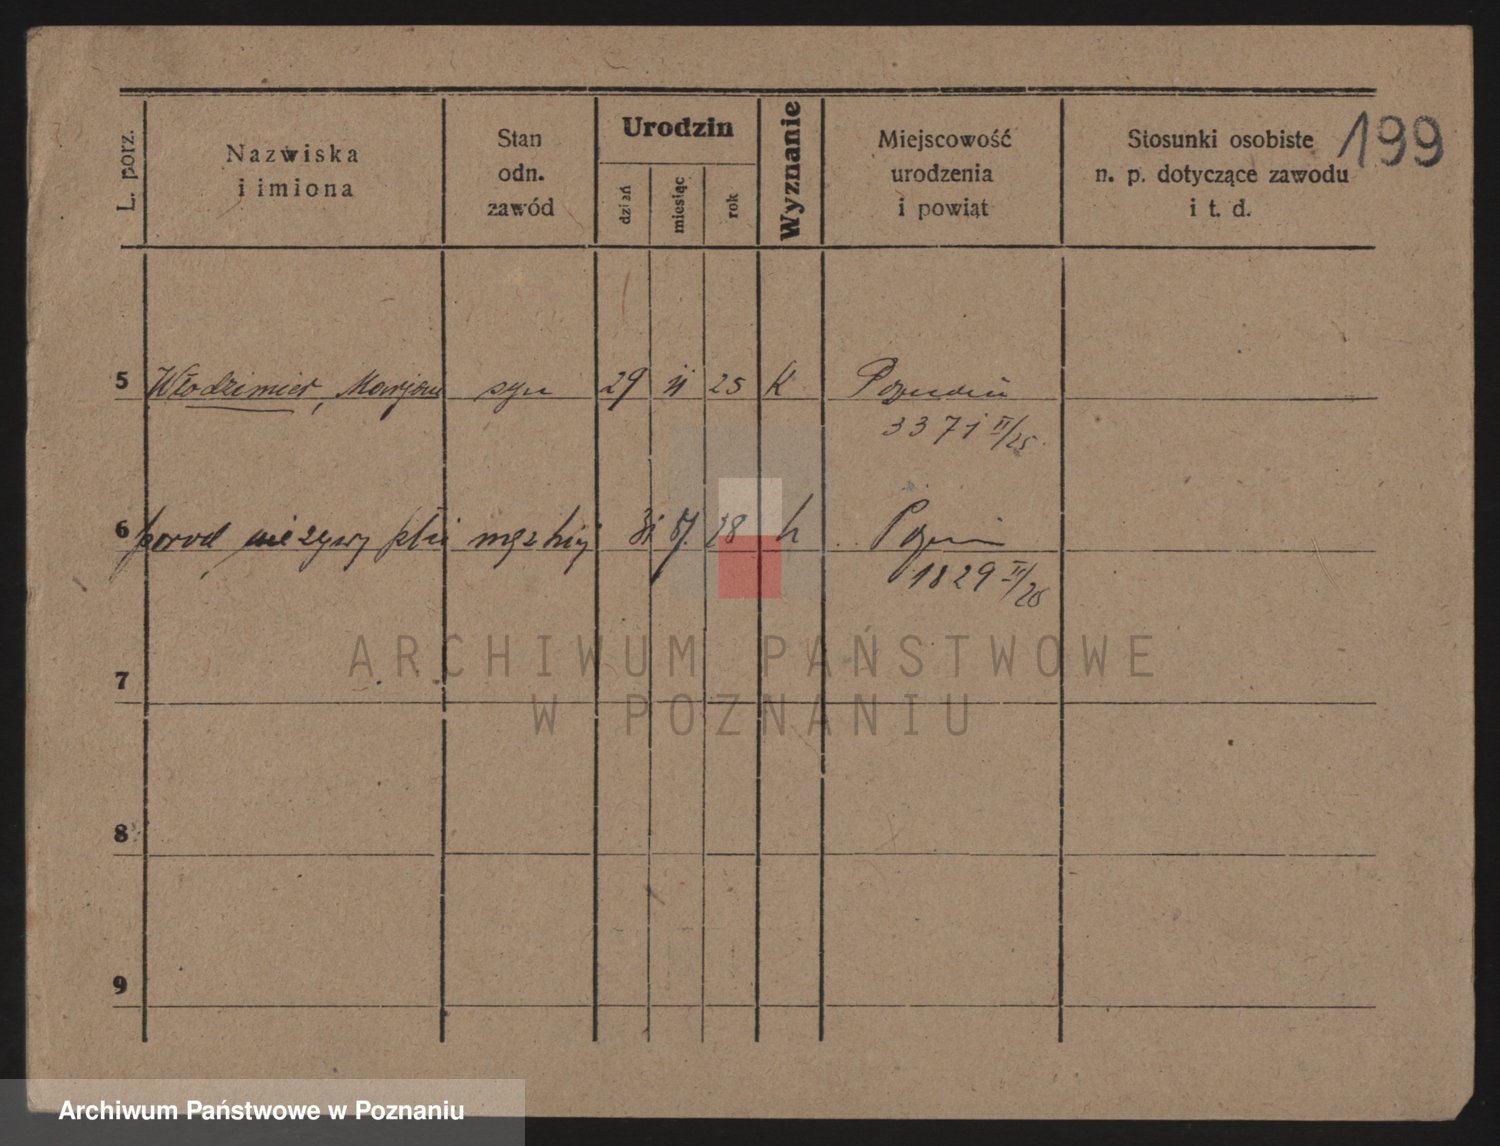 199
L. porz.
Nazwiska
i imiona
Stan
odn.
zawód
Urodzin
dzień
miesiąc
rok
Wyznanie
Miejscowość
urodzenia
i powiat
Stosunki osobiste
n. p. dotyczące zawodu
i t. d.
5 Włodzimierz, Marjan syn 29 11 25 K Poznań
3371 II/25
6 porod nieżywy płci męzkiej 31 28
1829 II/28
7
8
9
ARCHIWUM PAŃSTWOWE
W POZNANIU
Archiwum Państwowe w Poznaniu